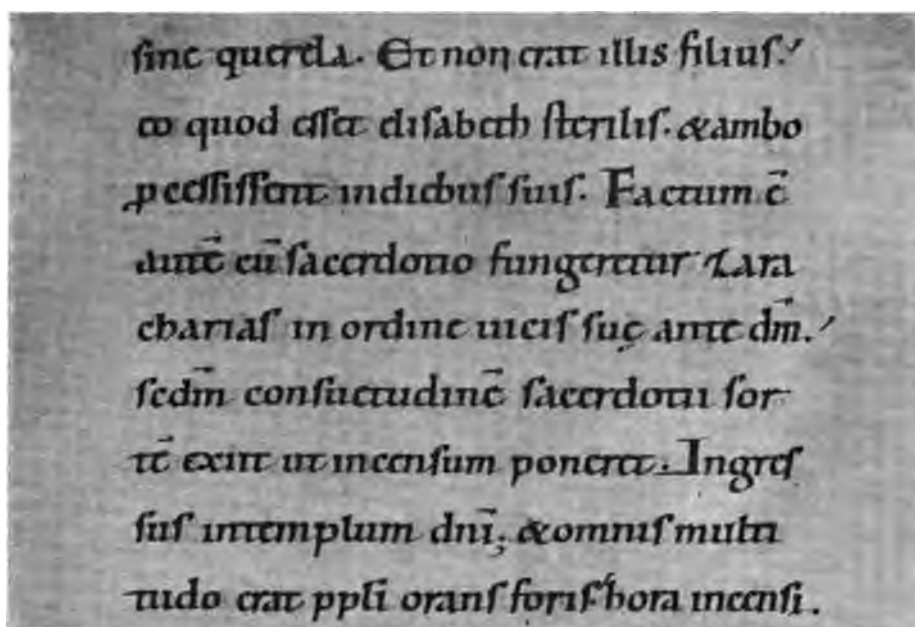 sine querela. Et non erat illis filius.
eo quod esset elisabeth sterilis. &ambo
pcessissent indiebus suis. Factum ē
autē cū sacerdotio fungeretur Zara
charias in ordine uicis suę ante dm̄.
scdm̄ consuetudinē sacerdotii sor
tē exiit ut incensum poneret. Ingres
sus intemplum dnī; &omnis multi
tudo erat ppli orans foris hora incensi.